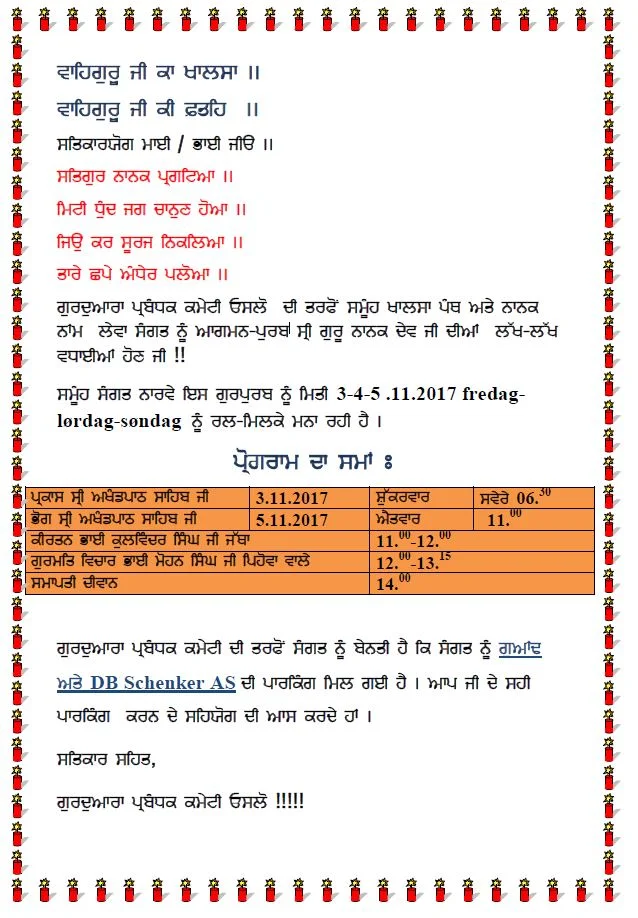 ਵਾਹਿਗੁਰੂ ਜੀ ਕਾ ਖਾਲਸਾ ॥
ਵਾਹਿਗੁਰੂ ਜੀ ਕੀ ਫ਼ਤਹਿ ॥
ਸਤਿਕਾਰਯੋਗ ਮਾਈ / ਭਾਈ ਜੀਓ ॥
ਸਤਿਗੁਰ ਨਾਨਕ ਪ੍ਰਗਟਿਆ ॥
ਮਿਟੀ ਧੁੰਦ ਜਗ ਚਾਨੁਣ ਹੋਆ ॥
ਜਿਉ ਕਰ ਸੂਰਜ ਨਿਕਲਿਆ ॥
ਤਾਰੇ ਛਪੇ ਅੰਧੇਰ ਪਲੋਆ ॥
ਗੁਰਦੁਆਰਾ ਪ੍ਰਬੰਧਕ ਕਮੇਟੀ ਓਸਲੋ ਦੀ ਤਰਫੋਂ ਸਮੂੰਹ ਖਾਲਸਾ ਪੰਥ ਅਤੇ ਨਾਨਕ
ਨਾਂਮ ਲੇਵਾ ਸੰਗਤ ਨੂੰ ਆਗਮਨ-ਪੁਰਬ ਸ੍ਰੀ ਗੁਰੂ ਨਾਨਕ ਦੇਵ ਜੀ ਦੀਆਂ ਲੱਖ-ਲੱਖ
ਵਧਾਈਆਂ ਹੋਣ ਜੀ !!
ਸਮੂੰਹ ਸੰਗਤ ਨਾਰਵੇ ਇਸ ਗੁਰਪੁਰਬ ਨੂੰ ਮਿਤੀ 3-4-5 .11.2017 fredag-
lørdag-søndag ਨੂੰ ਰਲ-ਮਿਲਕੇ ਮਨਾ ਰਹੀ ਹੈ ।
ਪ੍ਰੋਗਰਾਮ ਦਾ ਸਮਾਂ :
ਪ੍ਰਕਾਸ ਸ੍ਰੀ ਅਖੰਡਪਾਠ ਸਾਹਿਬ ਜੀ 3.11.2017 ਸ਼ੁੱਕਰਵਾਰ ਸਵੇਰੇ 06.30
ਭੋਗ ਸ੍ਰੀ ਅਖੰਡਪਾਠ ਸਾਹਿਬ ਜੀ 5.11.2017 ਐਤਵਾਰ 11.00
ਕੀਰਤਨ ਭਾਈ ਕੁਲਵਿੰਦਰ ਸਿੰਘ ਜੀ ਜੱਥਾ 11.00-12.00
ਗੁਰਮਤਿ ਵਿਚਾਰ ਭਾਈ ਮੋਹਨ ਸਿੰਘ ਜੀ ਪਿਹੋਵਾ ਵਾਲੇ 12.00-13.15
ਸਮਾਪਤੀ ਦੀਵਾਨ 14.00
ਗੁਰਦੁਆਰਾ ਪ੍ਰਬੰਧਕ ਕਮੇਟੀ ਦੀ ਤਰਫੋਂ ਸੰਗਤ ਨੂੰ ਬੇਨਤੀ ਹੈ ਕਿ ਸੰਗਤ ਨੂੰ ਗਆਂਢ
ਅਤੇ DB Schenker AS ਦੀ ਪਾਰਕਿੰਗ ਮਿਲ ਗਈ ਹੈ । ਆਪ ਜੀ ਦੇ ਸਹੀ
ਪਾਰਕਿੰਗ ਕਰਨ ਦੇ ਸਹਿਯੋਗ ਦੀ ਆਸ ਕਰਦੇ ਹਾਂ ।
ਸਤਿਕਾਰ ਸਹਿਤ,
ਗੁਰਦੁਆਰਾ ਪ੍ਰਬੰਧਕ ਕਮੇਟੀ ਓਸਲੋ !!!!!